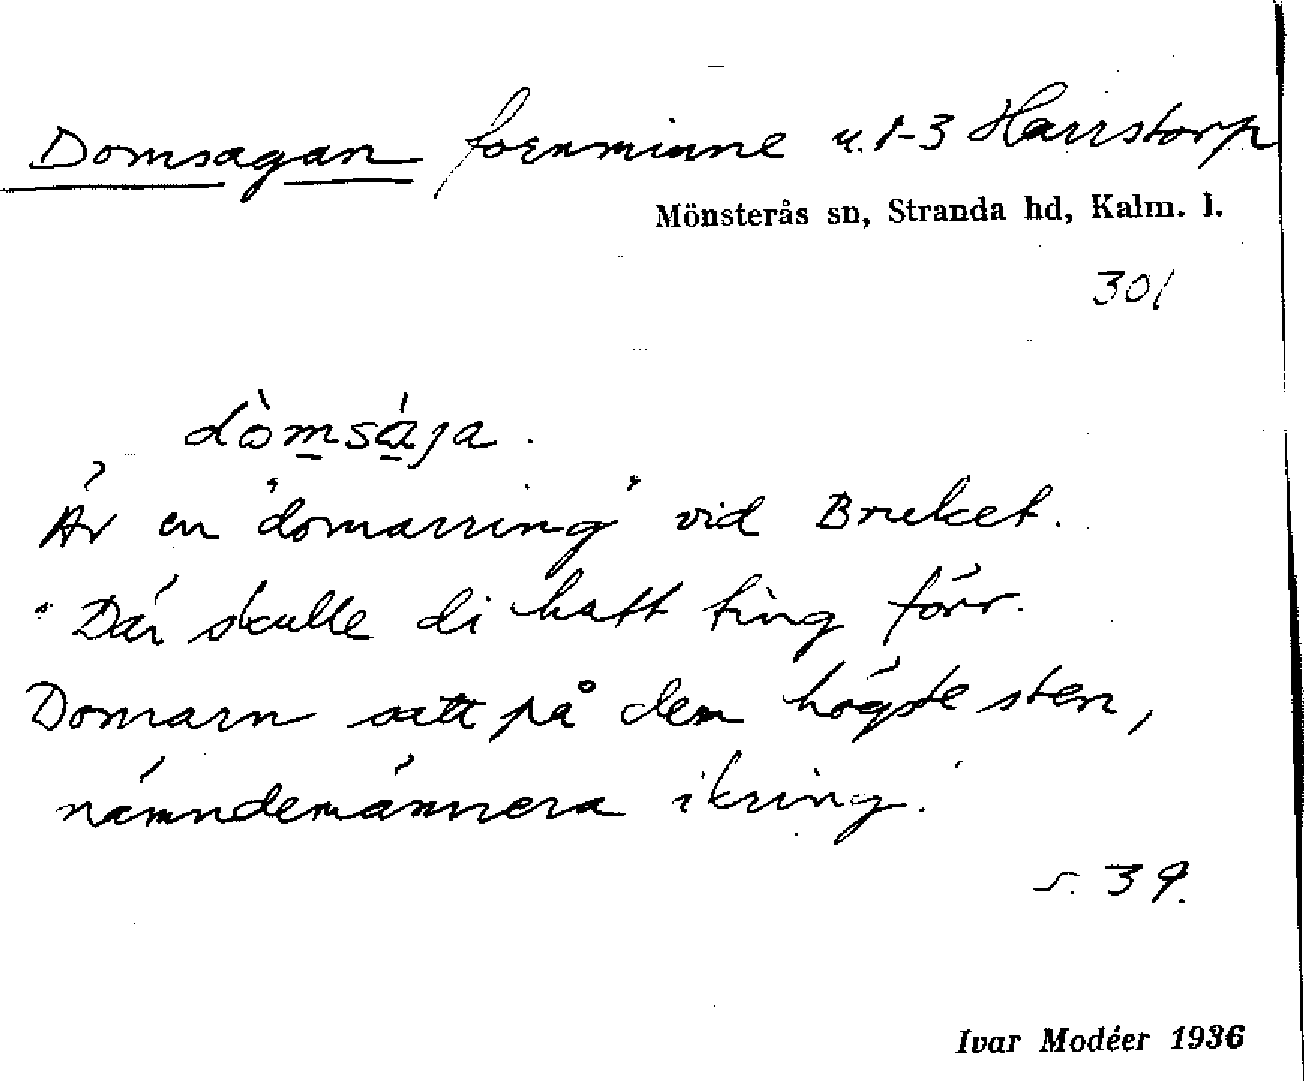 Domsagan fornminne u. 1-3 Harrstorp
Mönsterås sn, Stranda hd, Kalm. l.
301
dòmsája.
Är en "domarring" vid Bruket.
"Där skulle di hatt ting förr.
Domarn satt på den högste sten,
nämndemännera ikring.
s. 39.
Ivar Modéer 1936